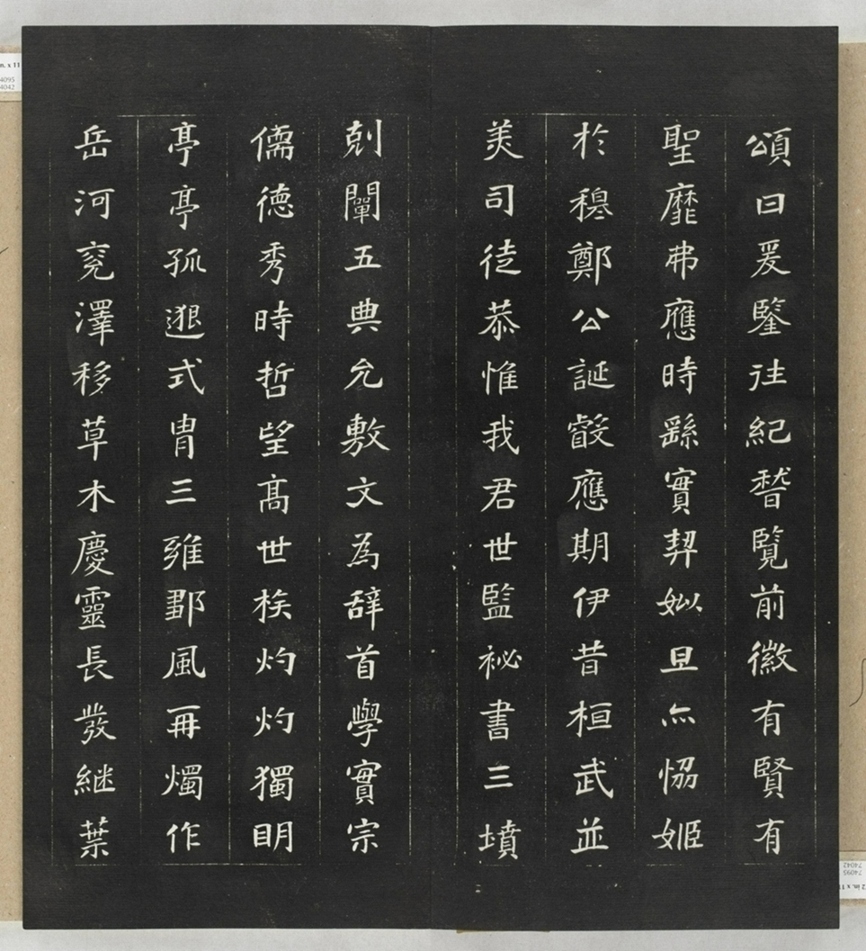 頌曰爰鑒往紀稽覽前徽有賢有
聖靡弗應時繇實契姒旦亦恊姬
於穆鄭公誕叡應期伊昔桓武並
美司徒恭惟我君世監祕書三墳
剋闡五典允敷文為辞首學實宗
儒德秀時哲望髙世族灼灼獨明
亭亭孤邈式冑三雍鄒風再燭作
岳河兖澤移草木慶靈長發継葉
in. x 11
4095
4042